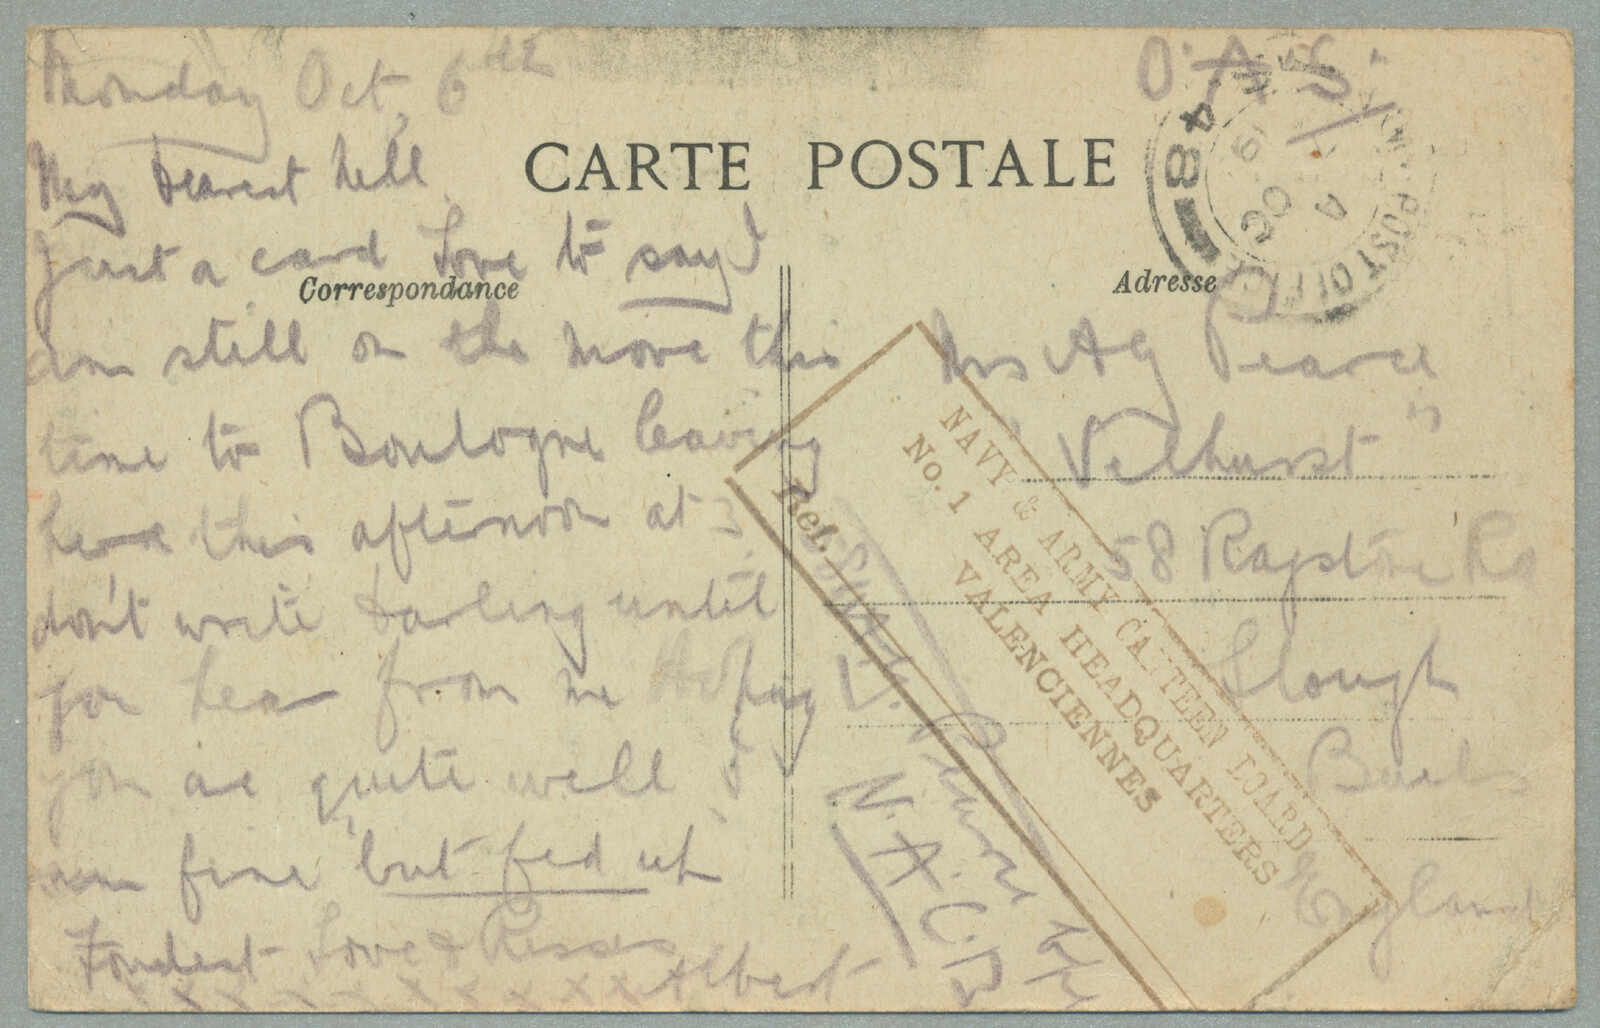 Monday Oct. 6th
My Dearest Nell
Just a card Love to say I
am still on the move this
time to Boulogne leaving
here this afternoon at 3.
don't write darling until
you hear from me
you are quite well I
am fine but fed up
Fondest Love & Kisses
x x x x x x x x Albert
CARTE POSTALE
Correspondance
Adresse
O.A.S.
ARMY POST OFFICE
48
A
OC
19
Mrs A G Pearce
"Velhurst"
58 Ragstone Rd
Slough
Bucks
England
NAVY & ARMY CANTEEN BOARD
No. 1 AREA HEADQUARTERS
VALENCIENNES
Ref.
N.A.C.B